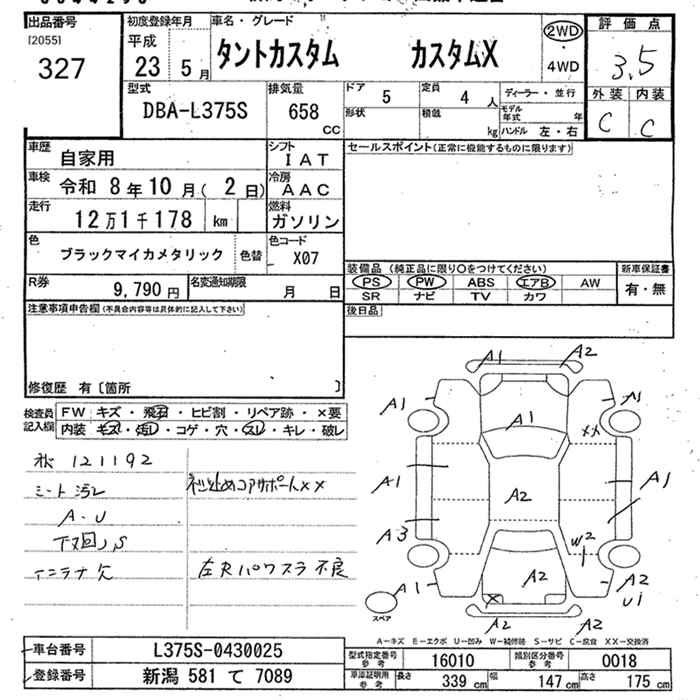 出品番号
[2055]
327
初度登録年月
平成
23年 5月
車名・グレード
タントカスタム カスタムX
2WD
・4WD
評価点
3.5
外装 内装
C C
型式
DBA-L375S
排気量
658
CC
ドア
5
定員
4人
形状
積載
kg
ディーラー・並行
モデル年式 年
ハンドル 左・右
車歴
自家用
シフト
IAT
車検
令和 8年 10月( 2日)
冷房
AAC
走行
12万1千178 km
燃料
ガソリン
色
ブラックマイカメタリック
色替
色コード
X07
R券
9,790 円
名変通知期限
月 日
セールスポイント(正常に機能するものに限ります)
装備品 (純正品に限り○をつけてください)
新車保証書
PS PW ABS エアB AW
有・無
SR ナビ TV カワ
後日品
注意事項申告欄(不具合内容等は具体的に記入して下さい)
修復歴 有〔箇所 〕
検査員記入欄
FW キズ・飛石・ヒビ割・リペア跡・×要
内装 キズ・汚レ・コゲ・穴・スレ・キレ・破レ
121192
シート汚レ
A-U
左Rパワスラ不良
A1 A2
A1 A1
A1
XX
A1 A2 A1
A3 W2
A1 A2 A2
U1
X
A2 A2
スペア
A-キズ E-エクボ U-凹み W-補修跡 S-サビ C-腐食 XX-交換済
車台番号
L375S-0430025
登録番号
新潟 581 て 7089
型式指定番号
参考
16010
類別区分番号
参考
0018
車庫証明用
参考
長さ
339 cm
幅
147 cm
高さ
175 cm